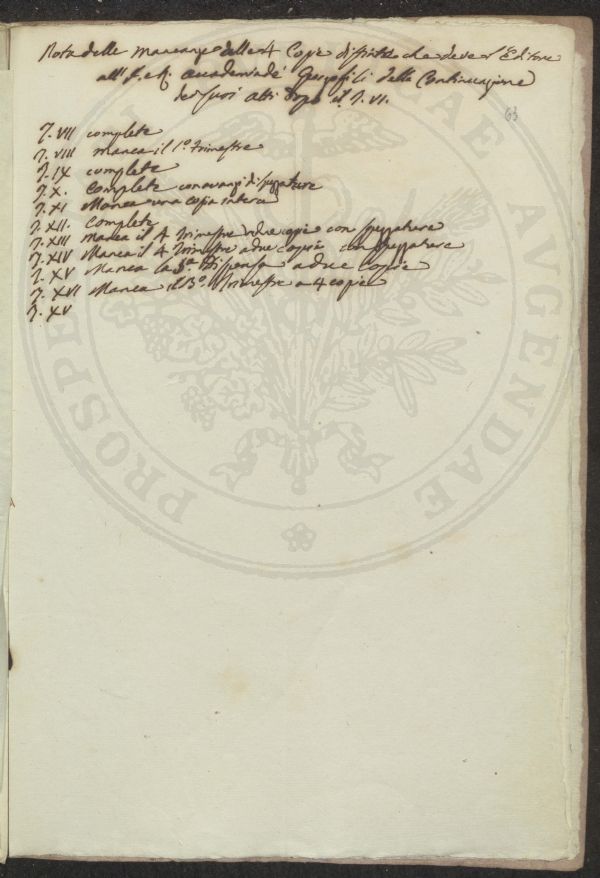 Nota delle mancanze delle 4 Copie distribte che deve l'Editore
all' I. e R. Accademia de' Georgofili della Continuazione
dei suoi Atti dopo il T. VI.
63
T. VII complete
T. VIII manca il 1.º trimestre
T. IX complete
T. X. Complete con avanzi di spezzature
T. XI Manca una copia intera
T. XII. Complete
T. XIII Manca il 4 Trimestre a due copie con spezzature
T. XIV Manca il 4 Trimestre a due copie con spezzature
T. XV Manca la 3.ª Dispensa a due Copie
T. XVI Manca il 3.º Trimestre a 4 copie
T. XV
PROSPERITATI PUBLICAE AUGENDAE